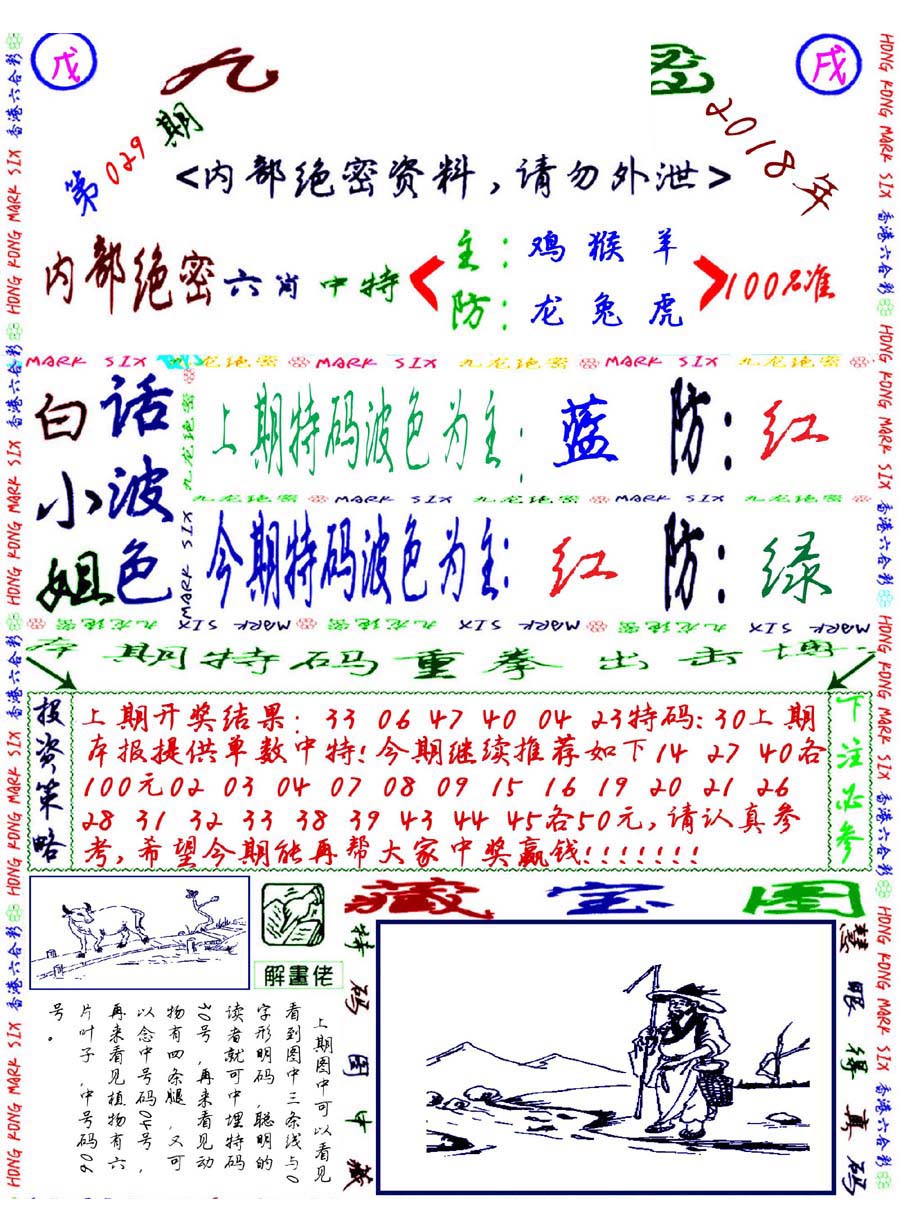 戊
九
密
戌
第029期
2018年
<内部绝密资料,请勿外泄>
内部绝密六肖中特
主:鸡猴羊
防:龙兔虎
100%准
MARK SIX 九龙绝密 MARK SIX 九龙绝密 MARK SIX 九龙绝密
白小姐
话波色
上期特码波色为主:蓝 防:红
九龙绝密 MARK SIX 九龙绝密 MARK SIX 九龙绝密
今期特码波色为主:红 防:绿
MARK SIX 九龙绝密 MARK SIX 九龙绝密 MARK SIX 九龙绝密
期特码重拳出击博
投资策略
上期开奖结果: 33 06 47 40 04 23特码:30上期
本报提供单数中特!今期继续推荐如下14 27 40各
100元02 03 04 07 08 09 15 16 19 20 21 26
28 31 32 33 38 39 43 44 45各50元,请认真参
考,希望今期能再帮大家中奖赢钱!!!!!!!
下注必参
解畫佬
藏宝图
特码图中藏
慧眼得真码
上期图中可以看见
看到图中三条线与0
字形明码,聪明的
读者就可中埋特码
30号,再来看见动
物有四条腿,又可
以念中号码04号,
再来看见植物有六
片叶子,中号码06
号。
HONG KONG MARK SIX 香港六合彩 HONG KONG MARK SIX 香港六合彩 HONG KONG MARK SIX 香港六合彩 HONG KONG MARK SIX 香港六合彩
HONG KONG MARK SIX 香港六合彩 HONG KONG MARK SIX 香港六合彩 HONG KONG MARK SIX 香港六合彩 HONG KONG MARK SIX 香港六合彩